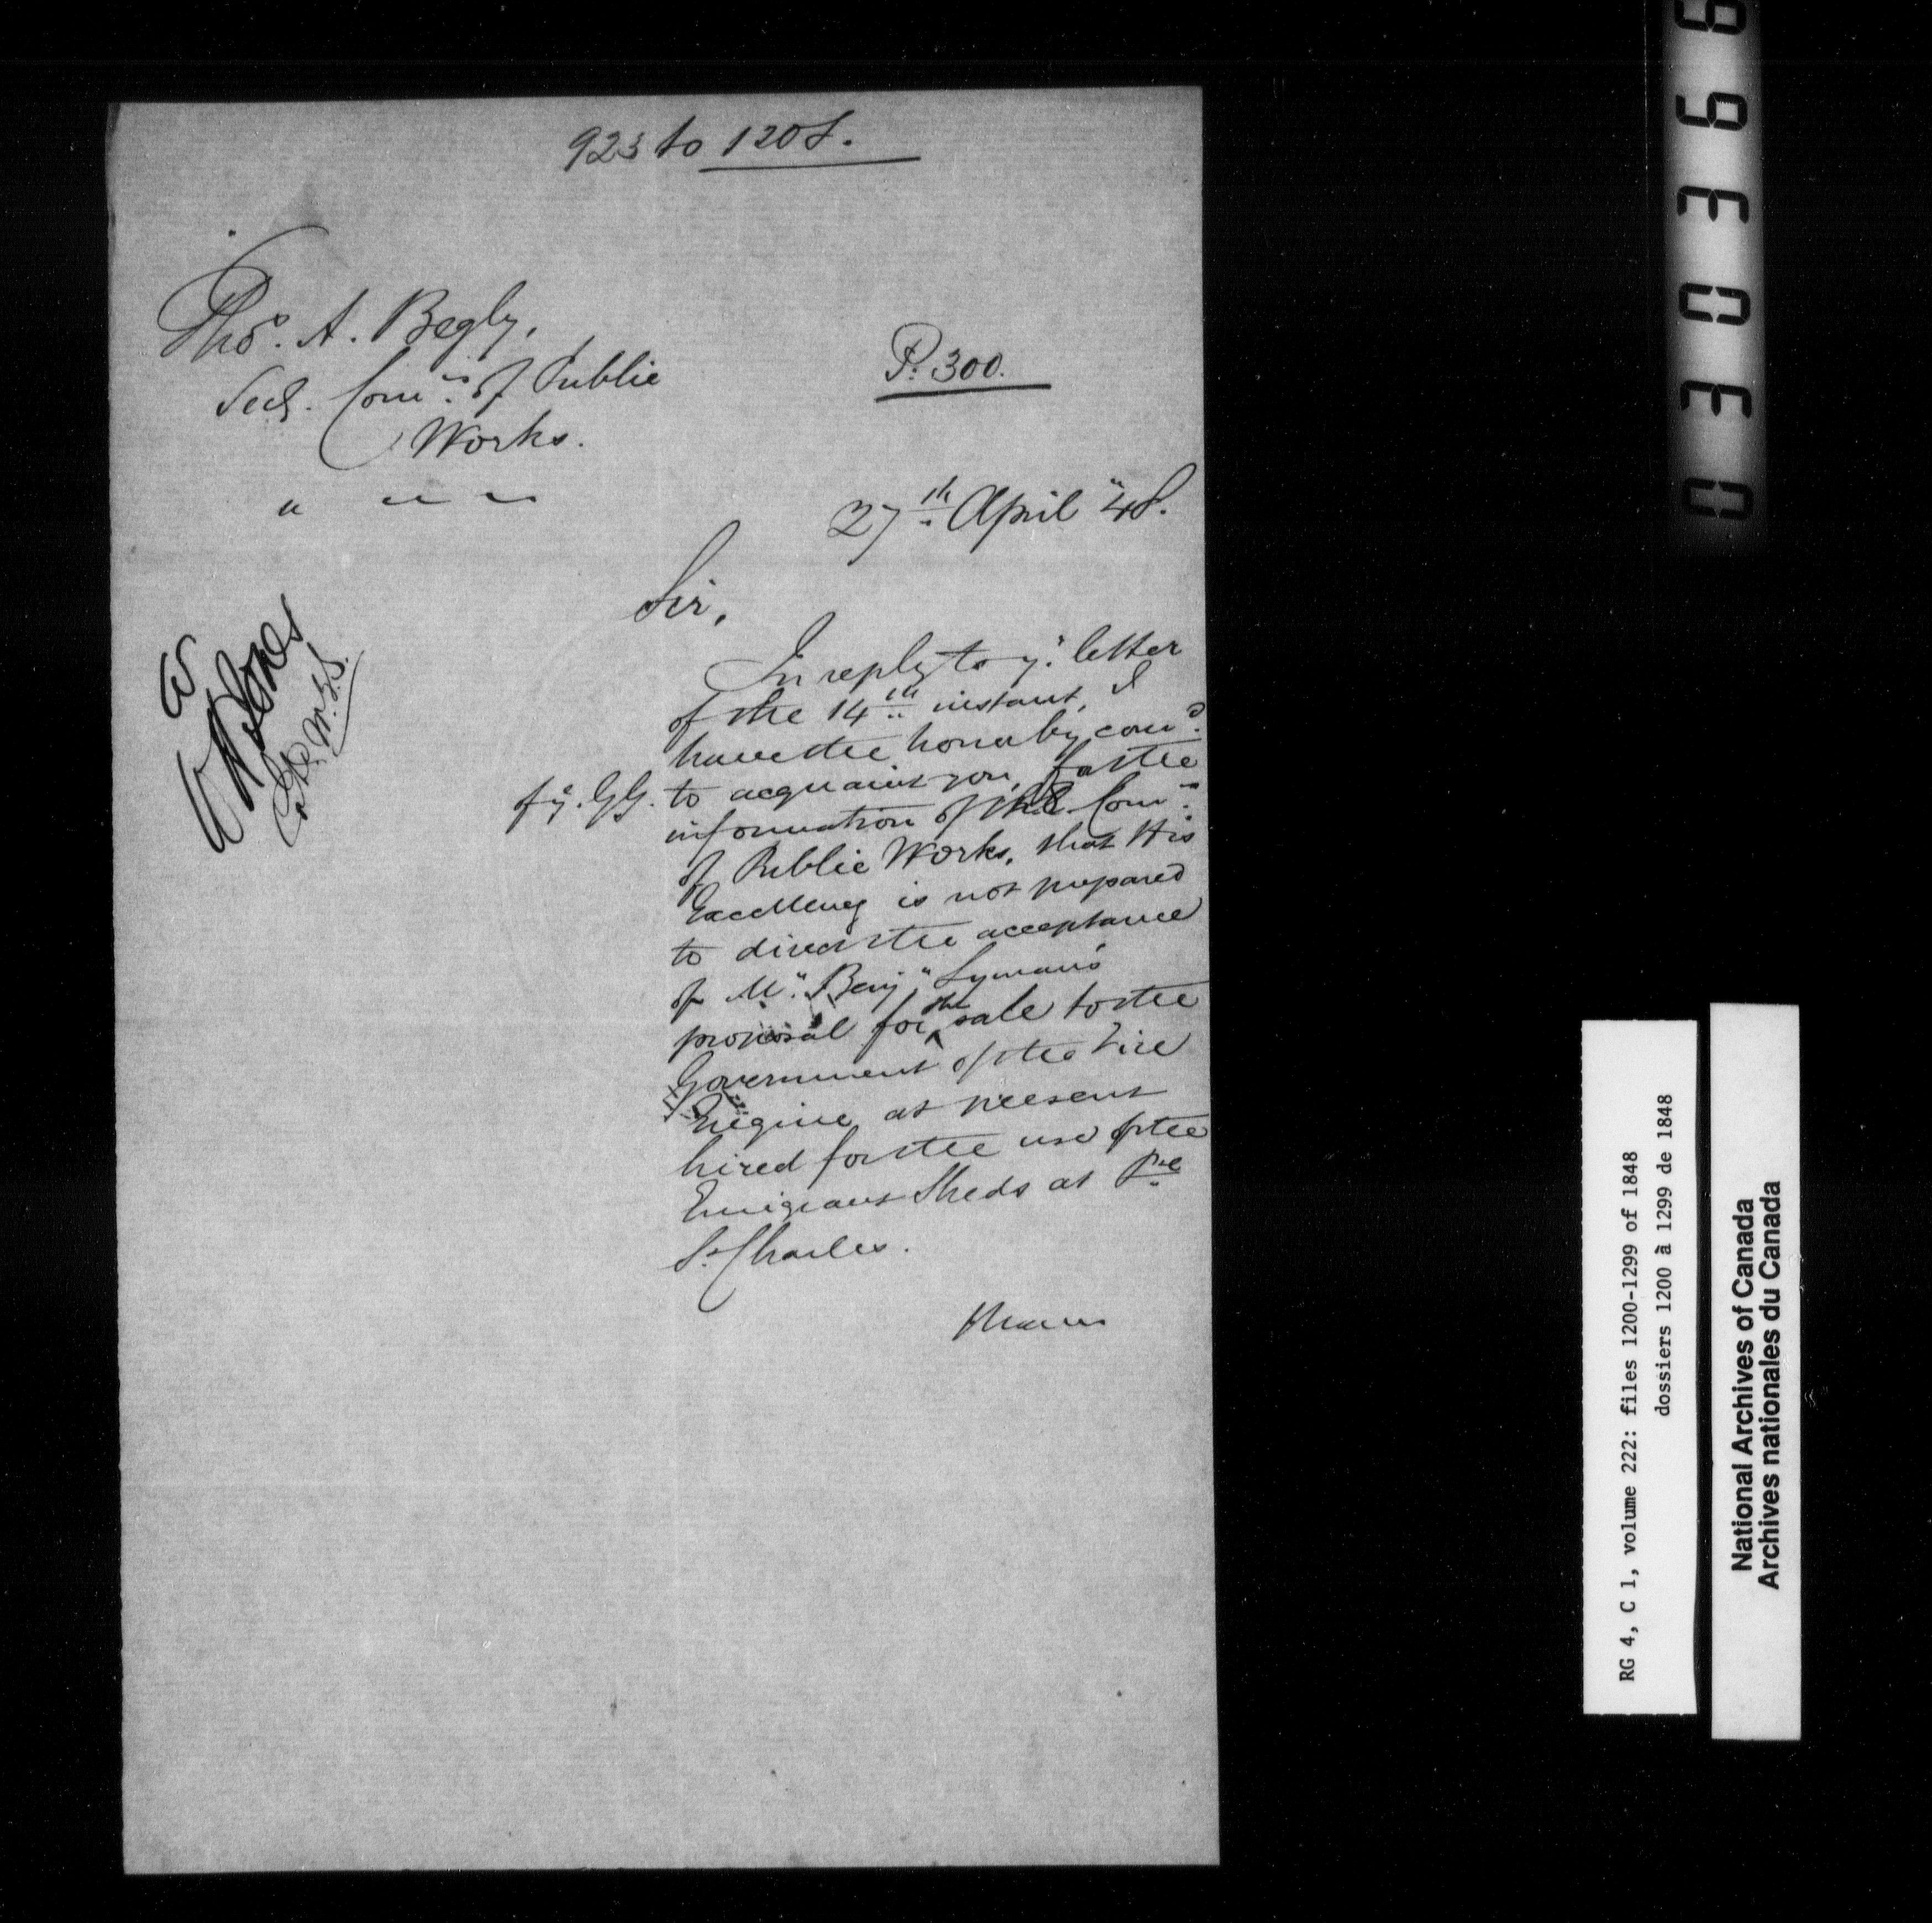 923 to 1208.
Thos. A. Begly,
Secy. Comrs. of Public
Works.
P. 300.
27th April "48.
Sir,
In reply to yr. letter
of the 14th instant, I
have the honor by comd.
of y. GG. to acquaint you, for the
information of the Comrs.
of Public Works, that His
Excellency is not prepared
to direct the acceptance
of Mr. Benj. Lyman's
proposal for the sale to the
Government of the Fire
Engine at present
hired for the use of the
Emigrant Sheds at Pte
St. Charles.
RG 4, C 1, volume 222: files 1200-1299 of 1848
dossiers 1200 à 1299 de 1848
National Archives of Canada
Archives nationales du Canada
030366